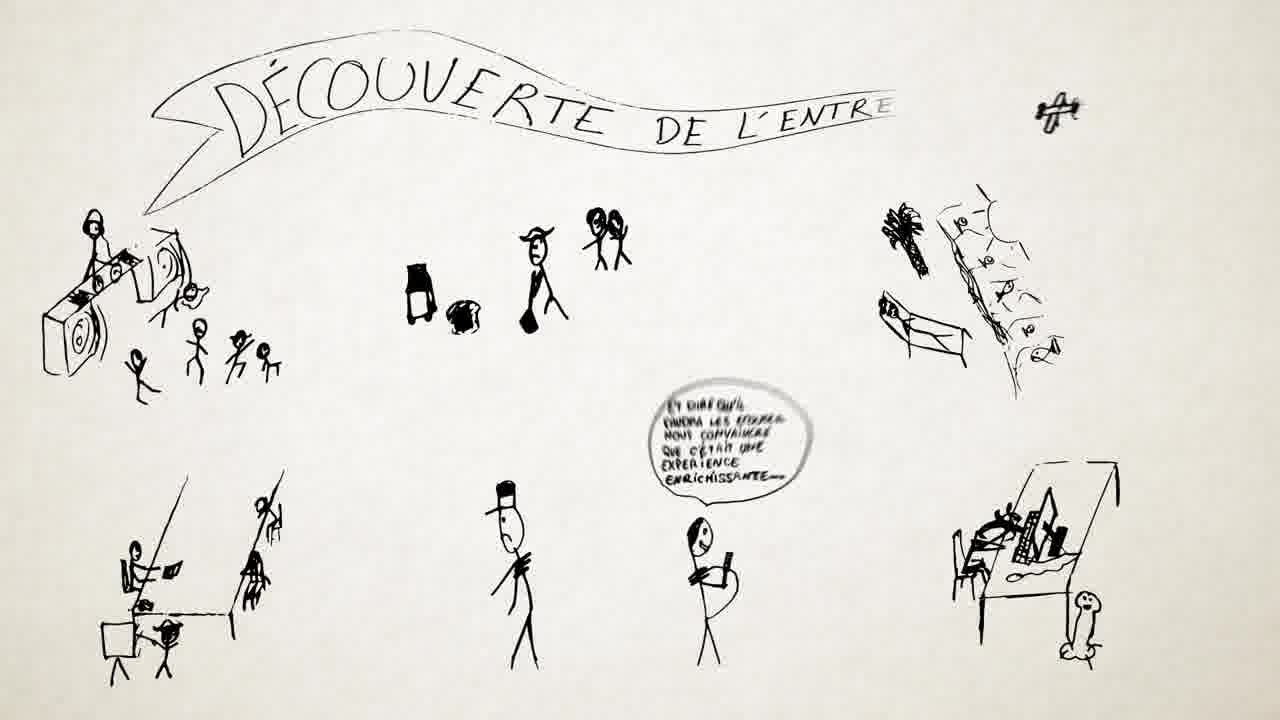 DÉCOUVERTE DE L'ENTRE
ET DIRE QU'IL
FAUDRA LES
NOUS CONVAINCRE
QUE C'ÉTAIT UNE
EXPERIENCE
ENRICHISSANTE...